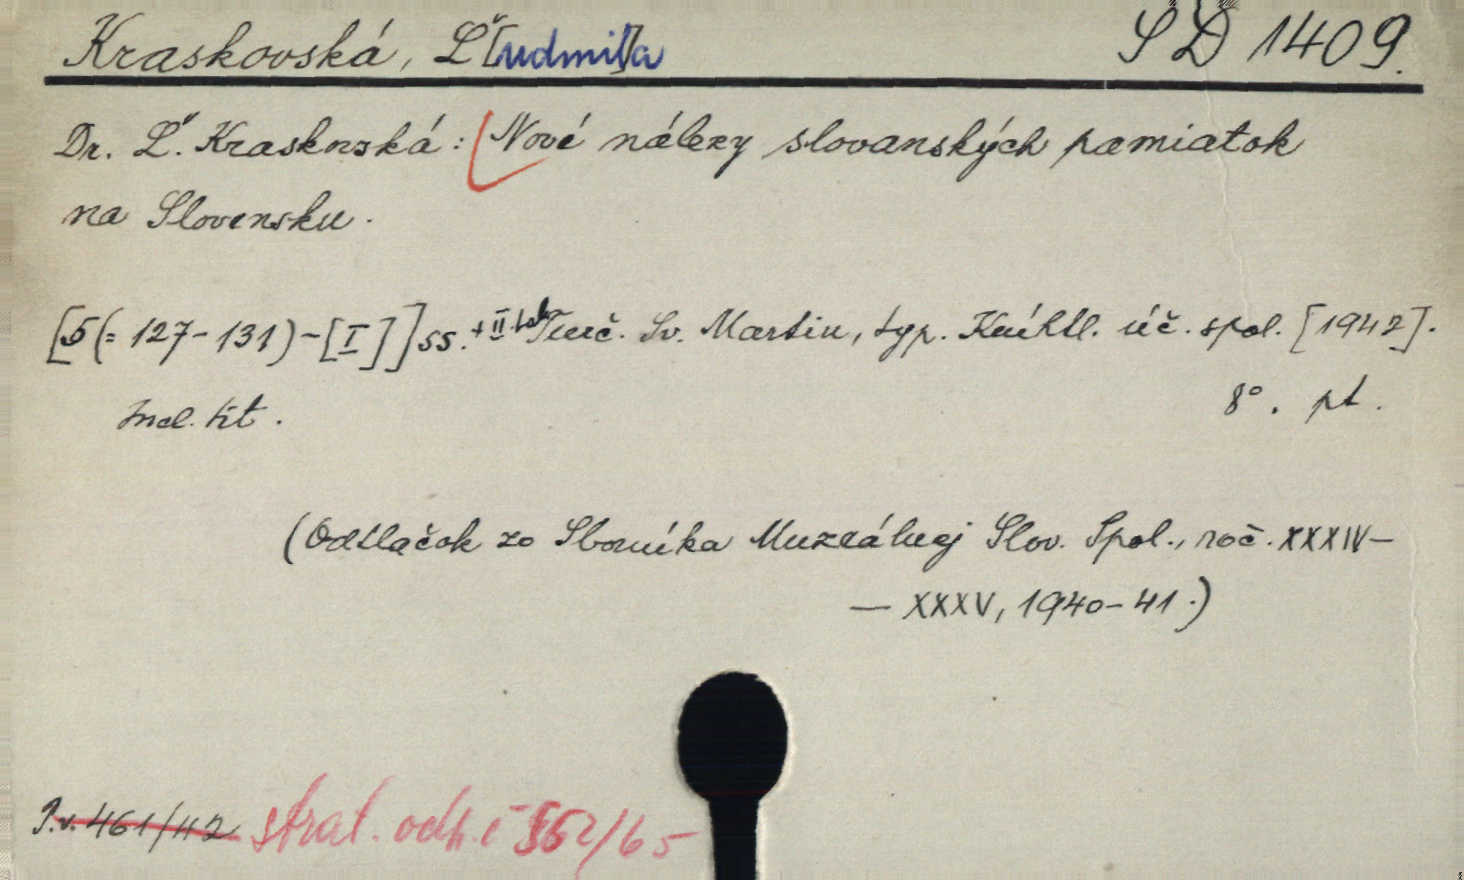 Kraskovská, Ľ[udmi]la SD 1409.
Dr. Ľ. Kraskovská: Nové nálezy slovanských pamiatok
na Slovensku.
[5(= 127-131)-[I]] ss. + II tab Turč. Sv. Martin, typ. Kníhtl. úč. spol. [1942].
Incl. tit. 8°. pt.
(Odtlačok zo Sborníka Muzeálnej Slov. Spol., roč. XXXIV-
— XXXV, 1940-41.)
P.v. 461/42 strat. odp. č 552/65